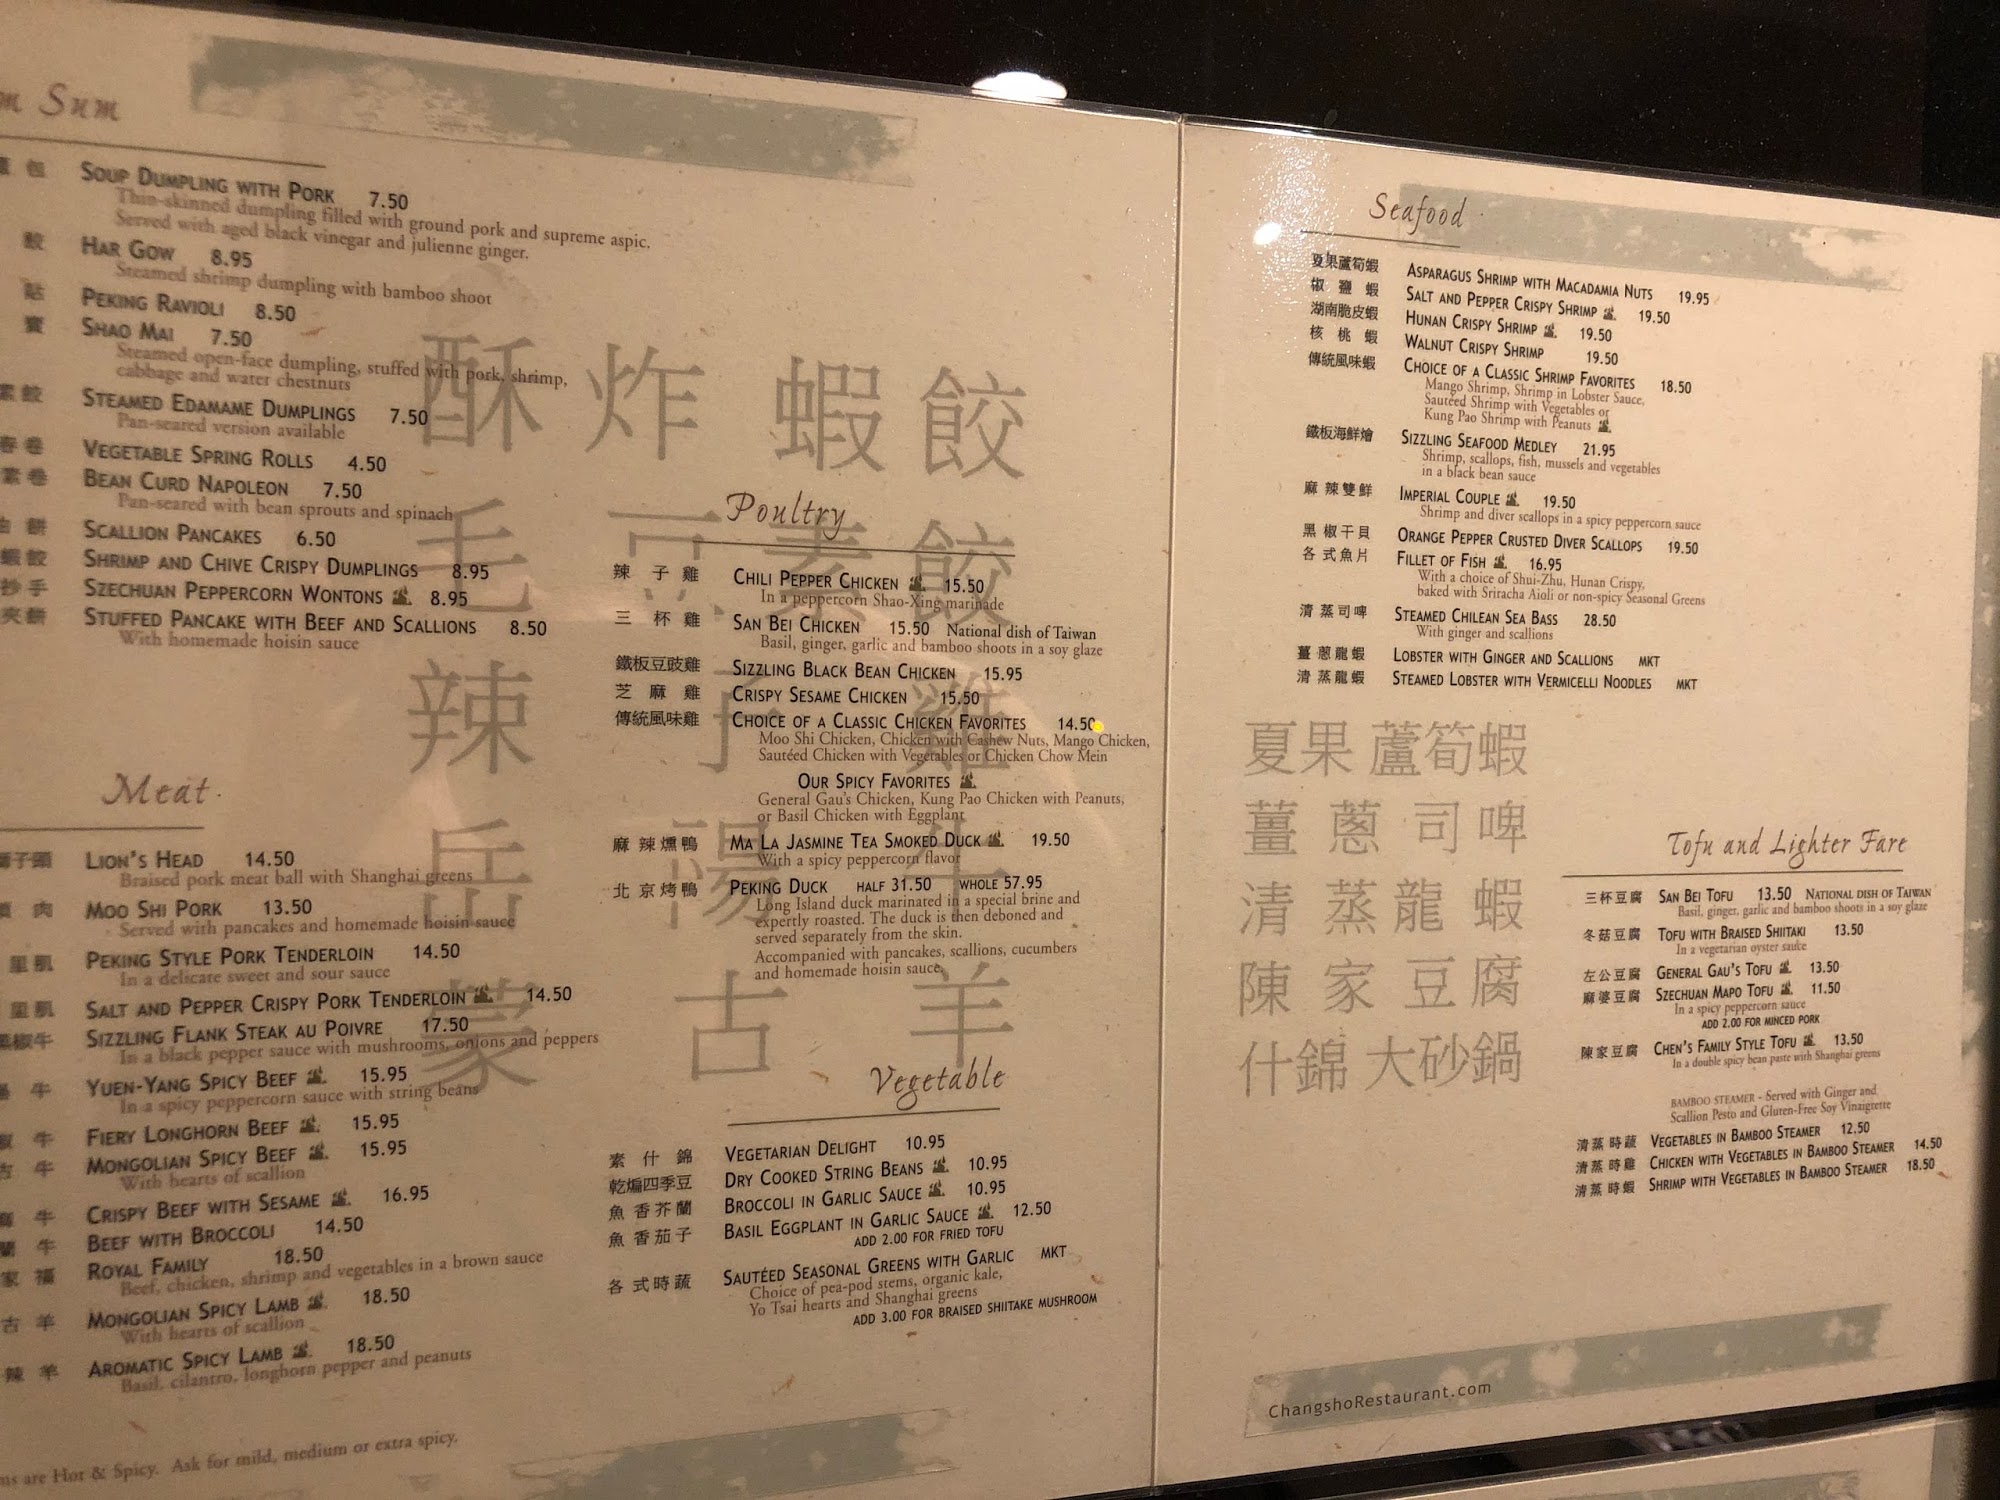 Sum
包 SOUP DUMPLING WITH PORK 7.50
Thin-skinned dumpling filled with ground pork and supreme aspic.
Served with aged black vinegar and julienne ginger.
餃 HAR GOW 8.95
Steamed shrimp dumpling with bamboo shoot
貼 PEKING RAVIOLI 8.50
賣 SHAO MAI 7.50
Steamed open-face dumpling, stuffed with pork, shrimp,
cabbage and water chestnuts
素餃 STEAMED EDAMAME DUMPLINGS 7.50
Pan-seared version available
春卷 VEGETABLE SPRING ROLLS 4.50
素卷 BEAN CURD NAPOLEON 7.50
Pan-seared with bean sprouts and spinach
油餅 SCALLION PANCAKES 6.50
蝦餃 SHRIMP AND CHIVE CRISPY DUMPLINGS 8.95
抄手 SZECHUAN PEPPERCORN WONTONS 8.95
夾餅 STUFFED PANCAKE WITH BEEF AND SCALLIONS 8.50
With homemade hoisin sauce
Meat
獅子頭 LION'S HEAD 14.50
Braised pork meat ball with Shanghai greens
肉 MOO SHI PORK 13.50
Served with pancakes and homemade hoisin sauce
里肌 PEKING STYLE PORK TENDERLOIN 14.50
In a delicate sweet and sour sauce
里肌 SALT AND PEPPER CRISPY PORK TENDERLOIN 14.50
黑椒牛 SIZZLING FLANK STEAK AU POIVRE 17.50
In a black pepper sauce with mushrooms, onions and peppers
牛 YUEN-YANG SPICY BEEF 15.95
In a spicy peppercorn sauce with string beans
椒牛 FIERY LONGHORN BEEF 15.95
古牛 MONGOLIAN SPICY BEEF 15.95
With hearts of scallion
麻牛 CRISPY BEEF WITH SESAME 16.95
蘭牛 BEEF WITH BROCCOLI 14.50
家福 ROYAL FAMILY 18.50
Beef, chicken, shrimp and vegetables in a brown sauce
古羊 MONGOLIAN SPICY LAMB 18.50
With hearts of scallion
辣羊 AROMATIC SPICY LAMB 18.50
Basil, cilantro, longhorn pepper and peanuts
are Hot & Spicy. Ask for mild, medium or extra spicy.
酥炸蝦餃
毛豆素餃
辣子雞
岳陽牛
蒙古羊
Poultry
辣子雞 CHILI PEPPER CHICKEN 15.50
In a peppercorn Shao-Xing marinade
三杯雞 SAN BEI CHICKEN 15.50 National dish of Taiwan
Basil, ginger, garlic and bamboo shoots in a soy glaze
鐵板豆豉雞 SIZZLING BLACK BEAN CHICKEN 15.95
芝麻雞 CRISPY SESAME CHICKEN 15.50
傳統風味雞 CHOICE OF A CLASSIC CHICKEN FAVORITES 14.50
Moo Shi Chicken, Chicken with Cashew Nuts, Mango Chicken,
Sautéed Chicken with Vegetables or Chicken Chow Mein
OUR SPICY FAVORITES
General Gau's Chicken, Kung Pao Chicken with Peanuts,
or Basil Chicken with Eggplant
麻辣燻鴨 MA LA JASMINE TEA SMOKED DUCK 19.50
With a spicy peppercorn flavor
北京烤鴨 PEKING DUCK HALF 31.50 WHOLE 57.95
Long Island duck marinated in a special brine and
expertly roasted. The duck is then deboned and
served separately from the skin.
Accompanied with pancakes, scallions, cucumbers
and homemade hoisin sauce.
Vegetable
素什錦 VEGETARIAN DELIGHT 10.95
乾煸四季豆 DRY COOKED STRING BEANS 10.95
魚香芥蘭 BROCCOLI IN GARLIC SAUCE 10.95
魚香茄子 BASIL EGGPLANT IN GARLIC SAUCE 12.50
ADD 2.00 FOR FRIED TOFU
各式時蔬 SAUTÉED SEASONAL GREENS WITH GARLIC MKT
Choice of pea-pod stems, organic kale,
Yo Tsai hearts and Shanghai greens
ADD 3.00 FOR BRAISED SHIITAKE MUSHROOM
Seafood
夏果蘆筍蝦 ASPARAGUS SHRIMP WITH MACADAMIA NUTS 19.95
椒鹽蝦 SALT AND PEPPER CRISPY SHRIMP 19.50
湖南脆皮蝦 HUNAN CRISPY SHRIMP 19.50
核桃蝦 WALNUT CRISPY SHRIMP 19.50
傳統風味蝦 CHOICE OF A CLASSIC SHRIMP FAVORITES 18.50
Mango Shrimp, Shrimp in Lobster Sauce,
Sautéed Shrimp with Vegetables or
Kung Pao Shrimp with Peanuts
鐵板海鮮燴 SIZZLING SEAFOOD MEDLEY 21.95
Shrimp, scallops, fish, mussels and vegetables
in a black bean sauce
麻辣雙鮮 IMPERIAL COUPLE 19.50
Shrimp and diver scallops in a spicy peppercorn sauce
黑椒干貝 ORANGE PEPPER CRUSTED DIVER SCALLOPS 19.50
各式魚片 FILLET OF FISH 16.95
With a choice of Shui-Zhu, Hunan Crispy,
baked with Sriracha Aioli or non-spicy Seasonal Greens
清蒸司啤 STEAMED CHILEAN SEA BASS 28.50
With ginger and scallions
薑蔥龍蝦 LOBSTER WITH GINGER AND SCALLIONS MKT
清蒸龍蝦 STEAMED LOBSTER WITH VERMICELLI NOODLES MKT
夏果蘆筍蝦
薑蔥司啤
清蒸龍蝦
陳家豆腐
什錦大砂鍋
Tofu and Lighter Fare
三杯豆腐 SAN BEI TOFU 13.50 NATIONAL DISH OF TAIWAN
Basil, ginger, garlic and bamboo shoots in a soy glaze
冬菇豆腐 TOFU WITH BRAISED SHIITAKI 13.50
In a vegetarian oyster sauce
左公豆腐 GENERAL GAU'S TOFU 13.50
麻婆豆腐 SZECHUAN MAPO TOFU 11.50
In a spicy peppercorn sauce
ADD 2.00 FOR MINCED PORK
陳家豆腐 CHEN'S FAMILY STYLE TOFU 13.50
In a double spicy bean paste with Shanghai greens
BAMBOO STEAMER - Served with Ginger and
Scallion Pesto and Gluten-Free Soy Vinaigrette
清蒸時蔬 VEGETABLES IN BAMBOO STEAMER 12.50
清蒸時雞 CHICKEN WITH VEGETABLES IN BAMBOO STEAMER 14.50
清蒸時蝦 SHRIMP WITH VEGETABLES IN BAMBOO STEAMER 18.50
ChangshoRestaurant.com